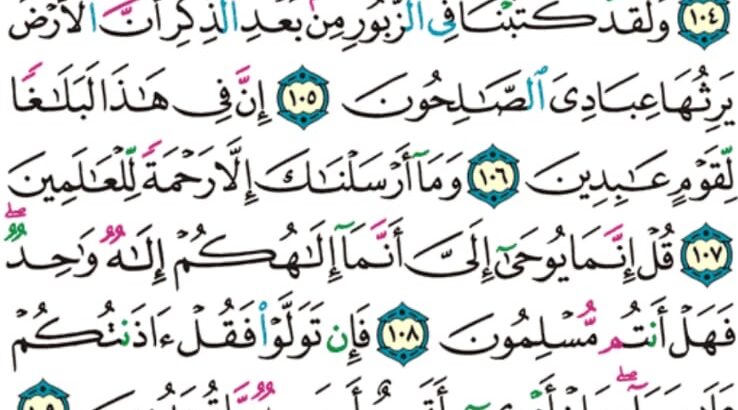 ١٠٤ وَلَقَدْ كَتَبْنَا فِى ٱلزَّبُورِ مِنۢ بَعْدِ ٱلذِّكْرِ أَنَّ ٱلْأَرْضَ
يَرِثُهَا عِبَادِىَ ٱلصَّـٰلِحُونَ ١٠٥ إِنَّ فِى هَـٰذَا لَبَلَـٰغًا
لِّقَوْمٍ عَـٰبِدِينَ ١٠٦ وَمَآ أَرْسَلْنَـٰكَ إِلَّا رَحْمَةً لِّلْعَـٰلَمِينَ
١٠٧ قُلْ إِنَّمَا يُوحَىٰٓ إِلَىَّ أَنَّمَآ إِلَـٰهُكُمْ إِلَـٰهٌ وَٰحِدٌ ۖ
فَهَلْ أَنتُم مُّسْلِمُونَ ١٠٨ فَإِن تَوَلَّوْا۟ فَقُلْ ءَاذَنتُكُمْ